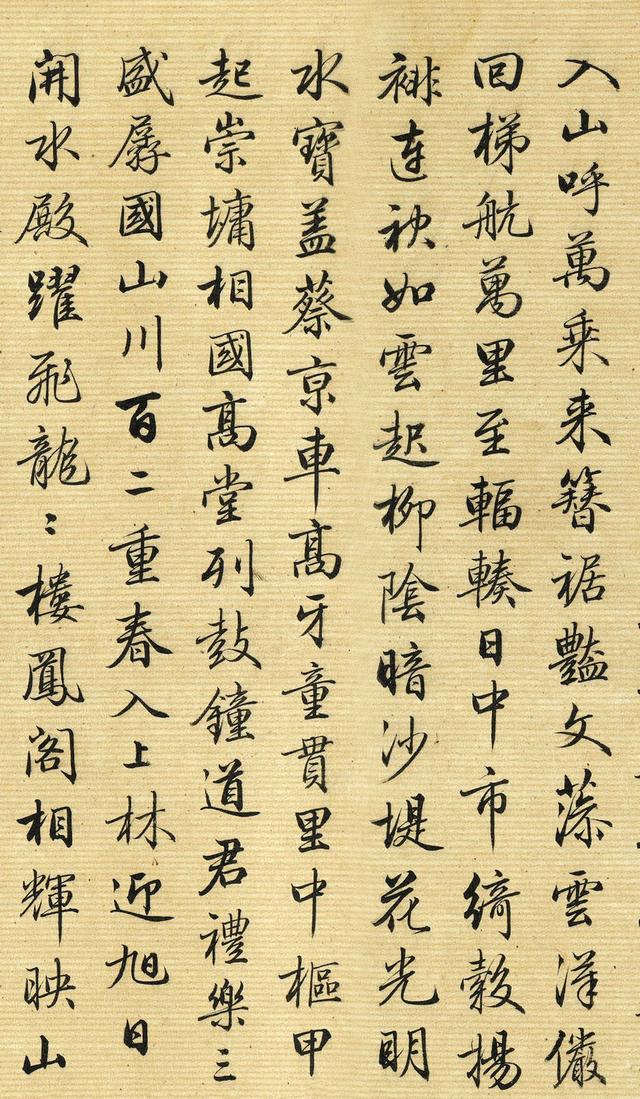 入山呼萬乘来簪裾豔文藻雲漢儼
回梯航萬里至輻輳日中市綺縠揚
裶連袂如雲起柳陰暗沙堤花光明
水寶盖蔡京車高牙童貫里中樞甲
起崇墉相國高堂列鼓鐘道君禮樂三
盛孱國山川百二重春入上林迎旭日
開水殿躍飛龍〻樓鳳閣相輝映山